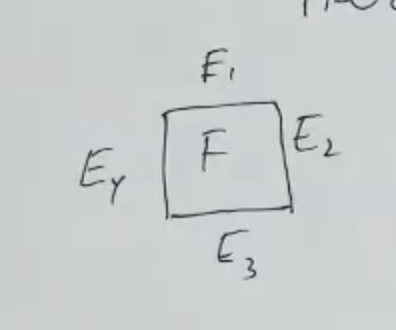 E₁
E₄ F E₂
E₃